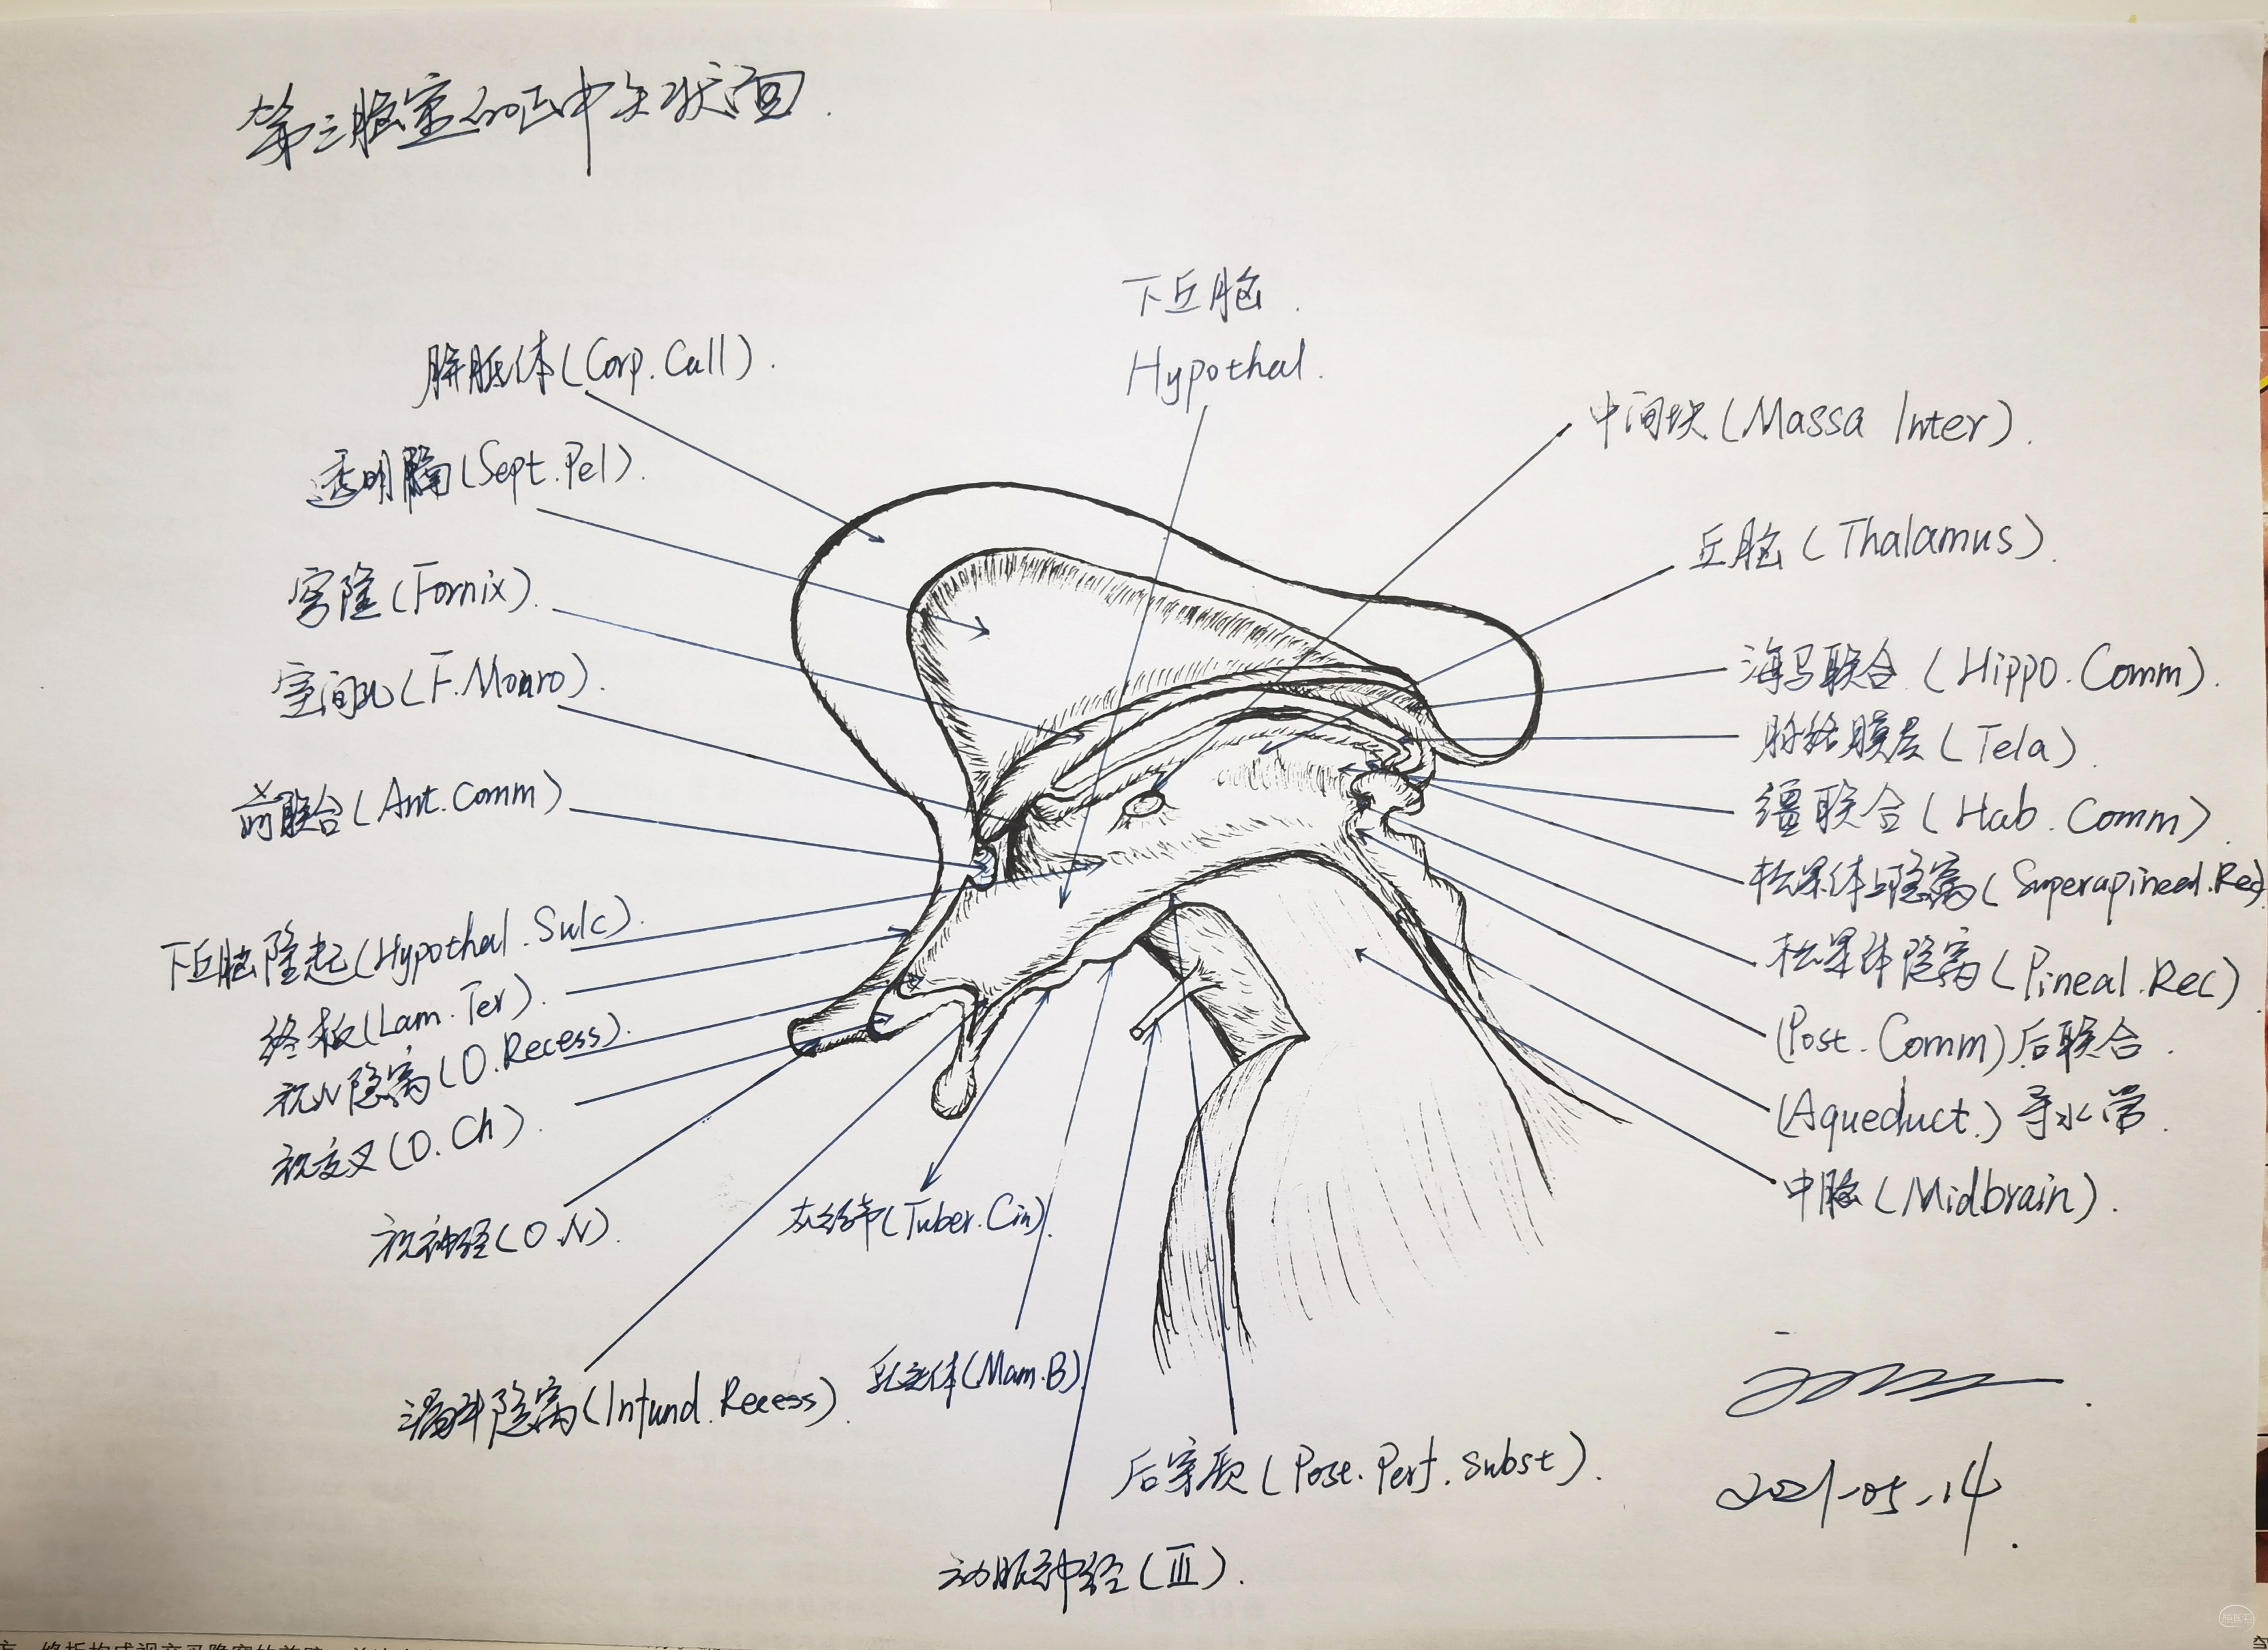 第三脑室的正中矢状面.
下丘脑.
Hypothal.
胼胝体(Corp.Call).
透明膈(Sept.Pel).
穹隆(Fornix).
室间孔(F.Monro).
前联合(Ant.Comm)
下丘脑隆起(Hypothal.Sulc).
终板(Lam.Ter).
视N隐窝(O.Recess).
视交叉(O.Ch).
视神经(O.N).
漏斗隐窝(Infund.Recess).
灰结节(Tuber.Cin).
乳头体(Mam.B)
动眼神经(III).
后穿质(Post.Perf.Subst).
中间块(Massa Inter).
丘脑(Thalamus).
海马联合(Hippo.Comm).
脉络膜层(Tela).
缰联合(Hab.Comm).
松果体上隐窝(Superapineal.Rec).
松果体隐窝(Pineal.Rec)
(Post.Comm)后联合.
(Aqueduct.)导水管.
中脑(Midbrain).
2021-05-14.